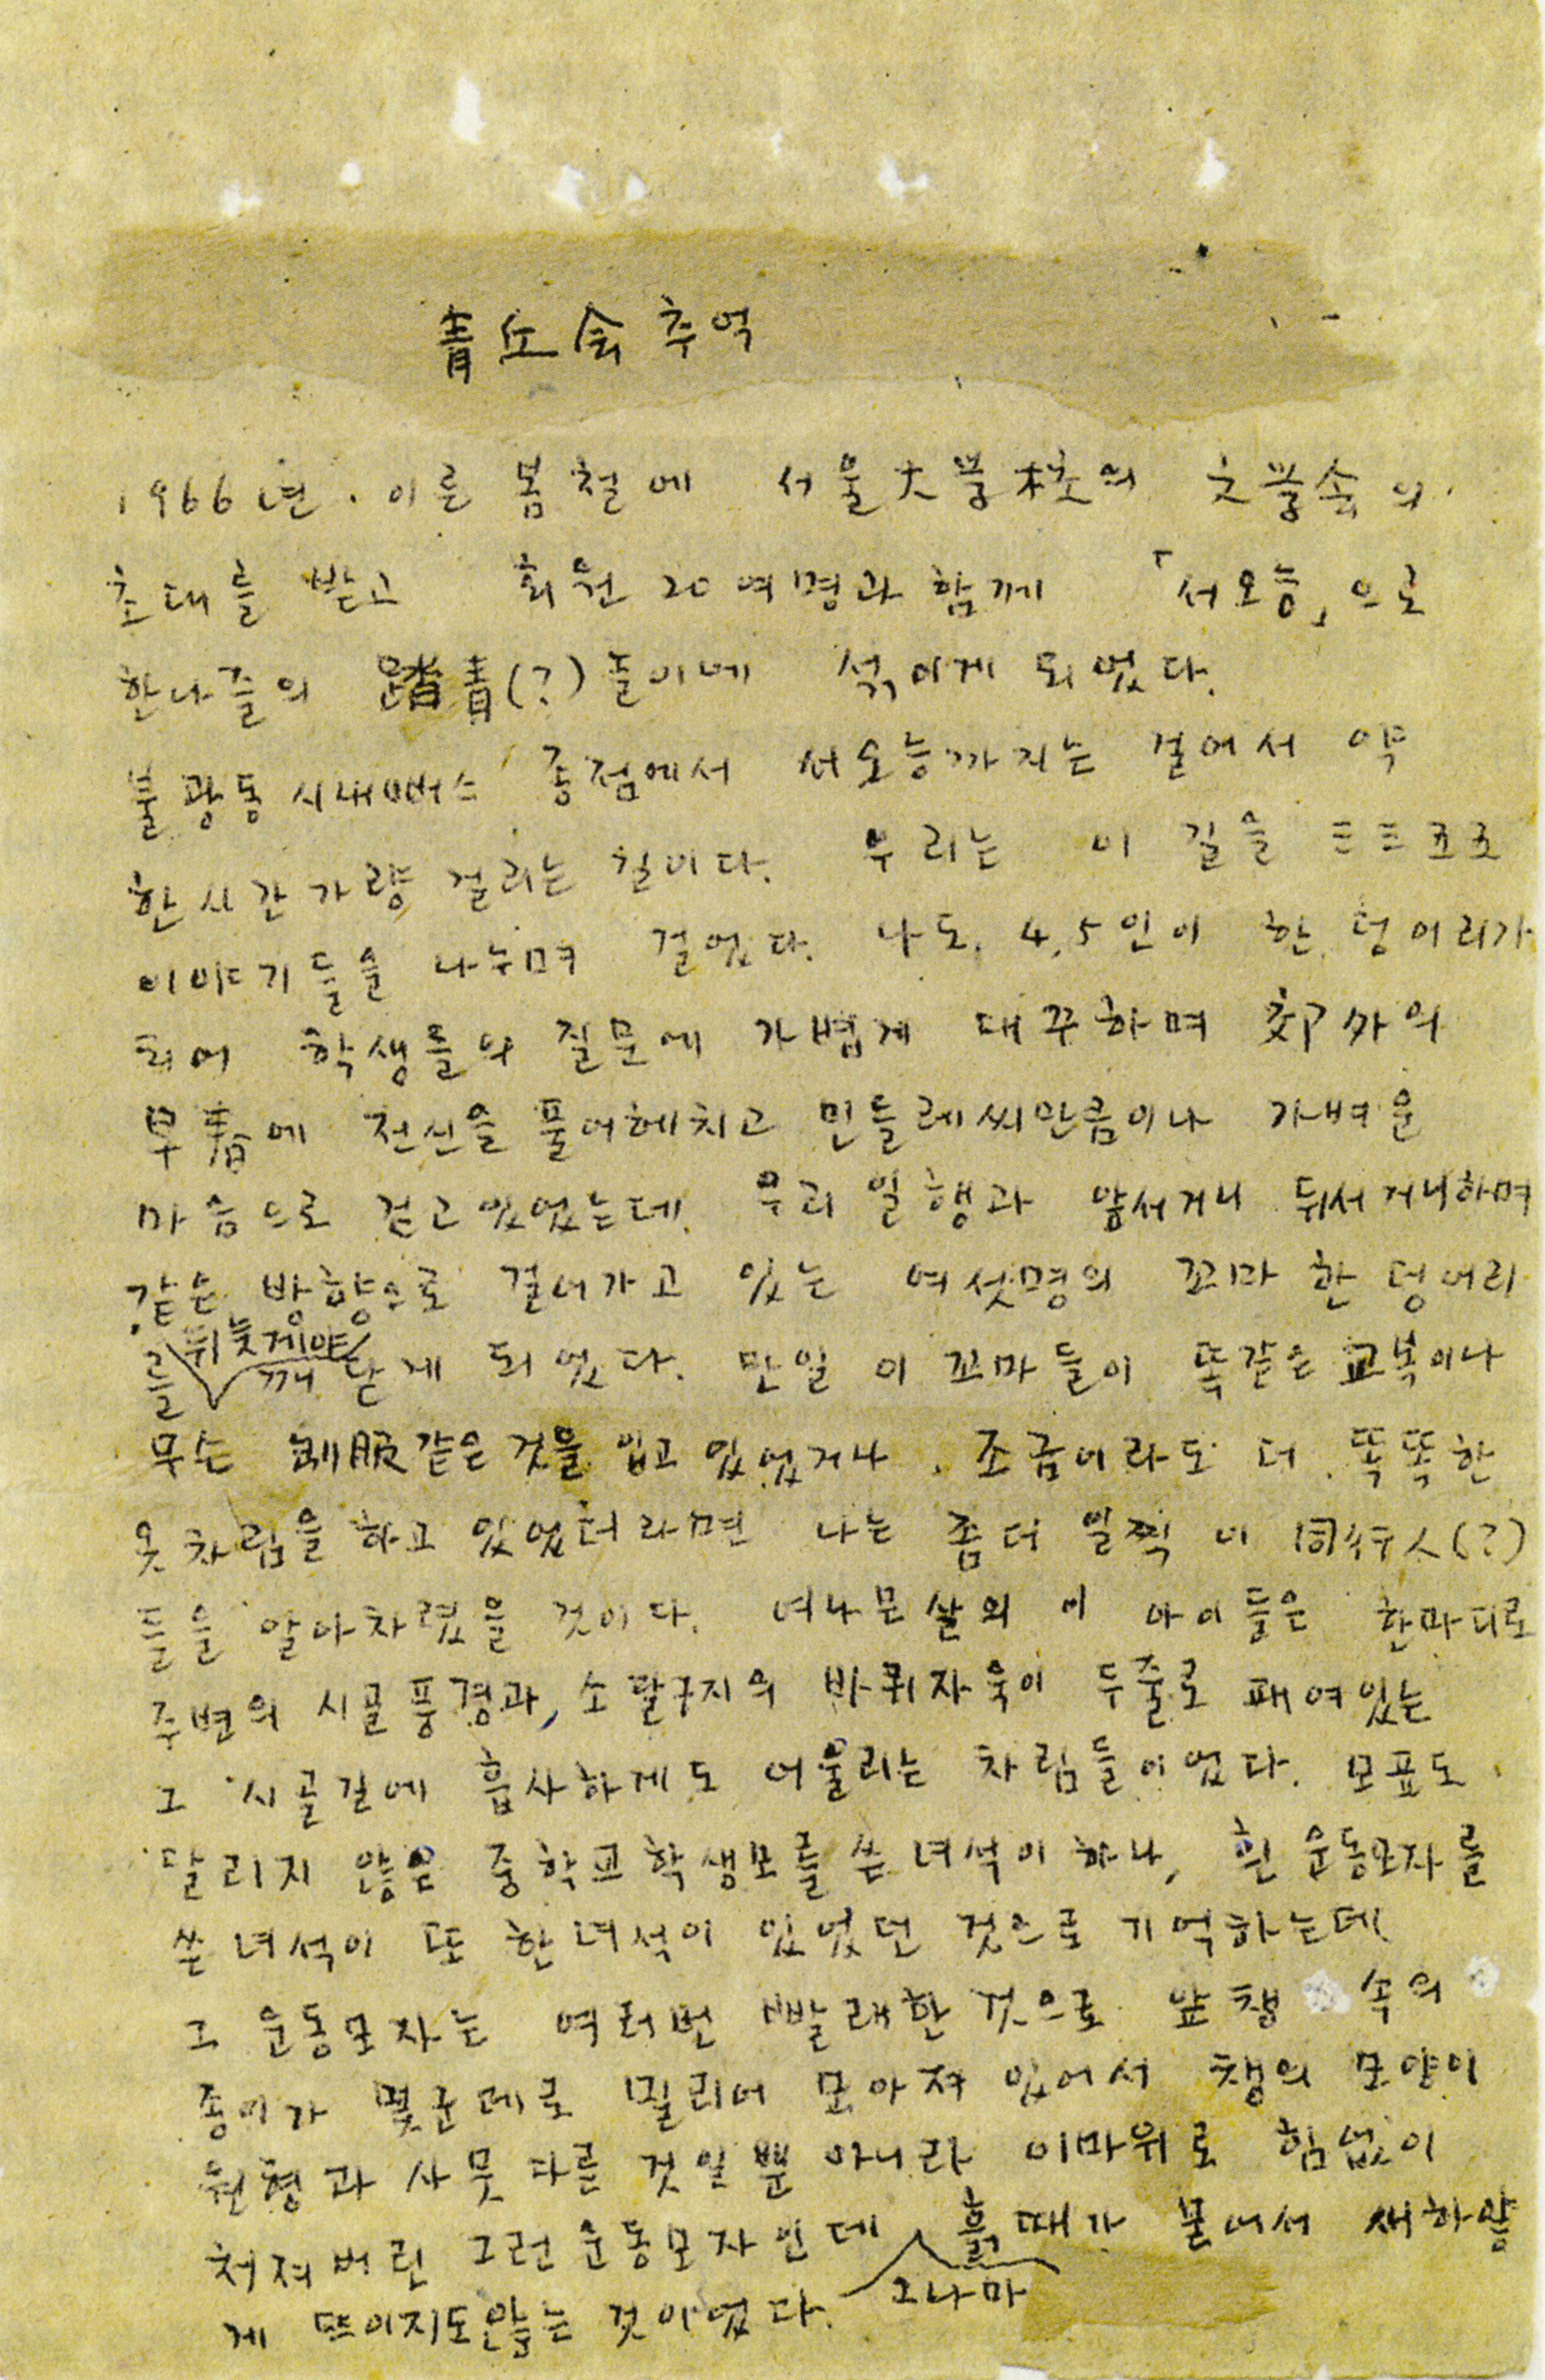 靑丘会 추억
1966년. 이른 봄철에 서울大学校의 文学会의
초대를 받고 회원 20여명과 함께 「서오능」으로
한나절의 踏靑(?)놀이에 섞이게 되었다.
불광동 시내버스 종점에서 서오능까지는 걸어서 약
한시간가량 걸리는 길이다. 우리는 이 길을 三三五五
이야기들을 나누며 걸었다. 나도, 4,5인이 한 덩어리가
되어 학생들의 질문에 가볍게 대꾸하며 郊外의
早春에 전신을 풀어헤치고 민들레씨만큼이나 가벼운
마음으로 걷고있었는데, 우리 일행과 앞서거니 뒤서거니하며
같은 방향으로 걸어가고 있는 여섯명의 꼬마 한 덩어리
를 뒤늦게야 깨닫게 되었다. 만일 이 꼬마들이 똑같은 교복이나
무슨 制服같은 것을 입고 있었거나, 조금이라도 더 똑똑한
옷차림을 하고 있었더라면 나는 좀더 일찍 이 同行人(?)
들을 알아차렸을 것이다. 여나문살의 이 아이들은 한마디로
주변의 시골풍경과, 소달구지의 바퀴자욱이 두줄로 패여있는
그 시골길에 흡사하게도 어울리는 차림들이었다. 모표도
달리지 않은 중학교학생모를 쓴 녀석이 하나, 흰 운동모자를
쓴 녀석이 또 한녀석이 있었던 것으로 기억하는데
그 운동모자는 여러번 빨래한 것으로 앞챙 속의
종이가 몇군데로 밀리어 모아져 있어서 챙의 모양이
원형과 사뭇 다른 것일뿐 아니라 이마위로 힘없이
처져버린 그런 운동모자인데 그나마 흙때가 묻어서 새하얗
게 뜨이지도않는 것이었다.